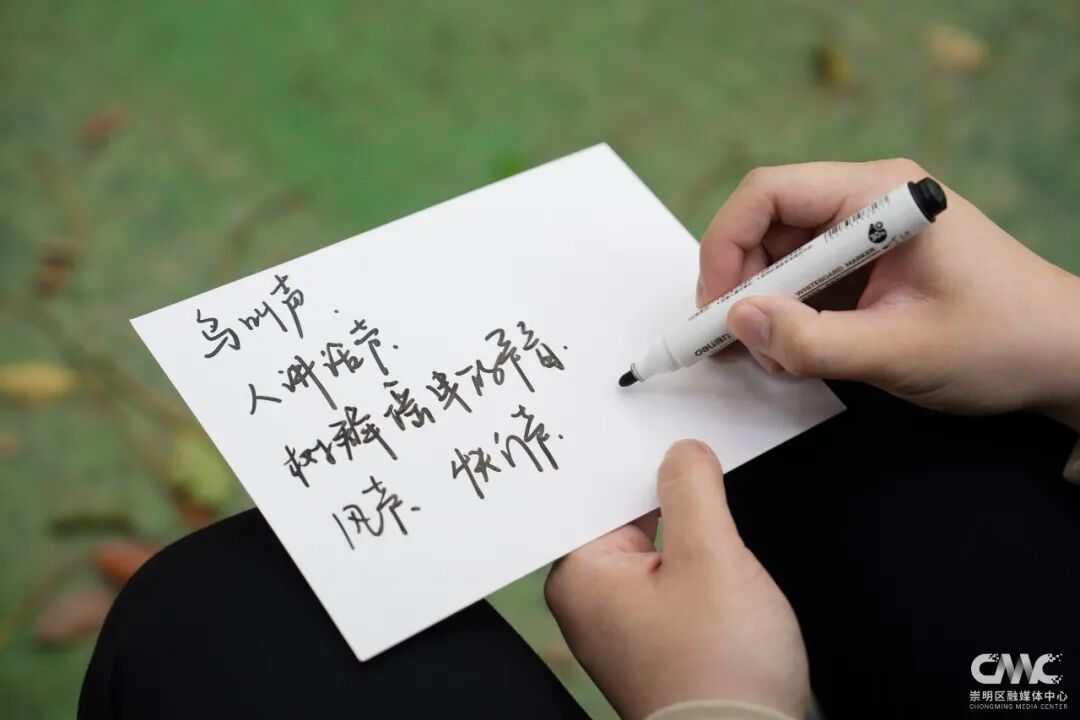 鸟叫声.
人讲话声.
树叶落地的声音.
风声. 快门声.
deli得力
WHITEBOARD MARKER
CMC
崇明区融媒体中心
CHONGMING MEDIA CENTER